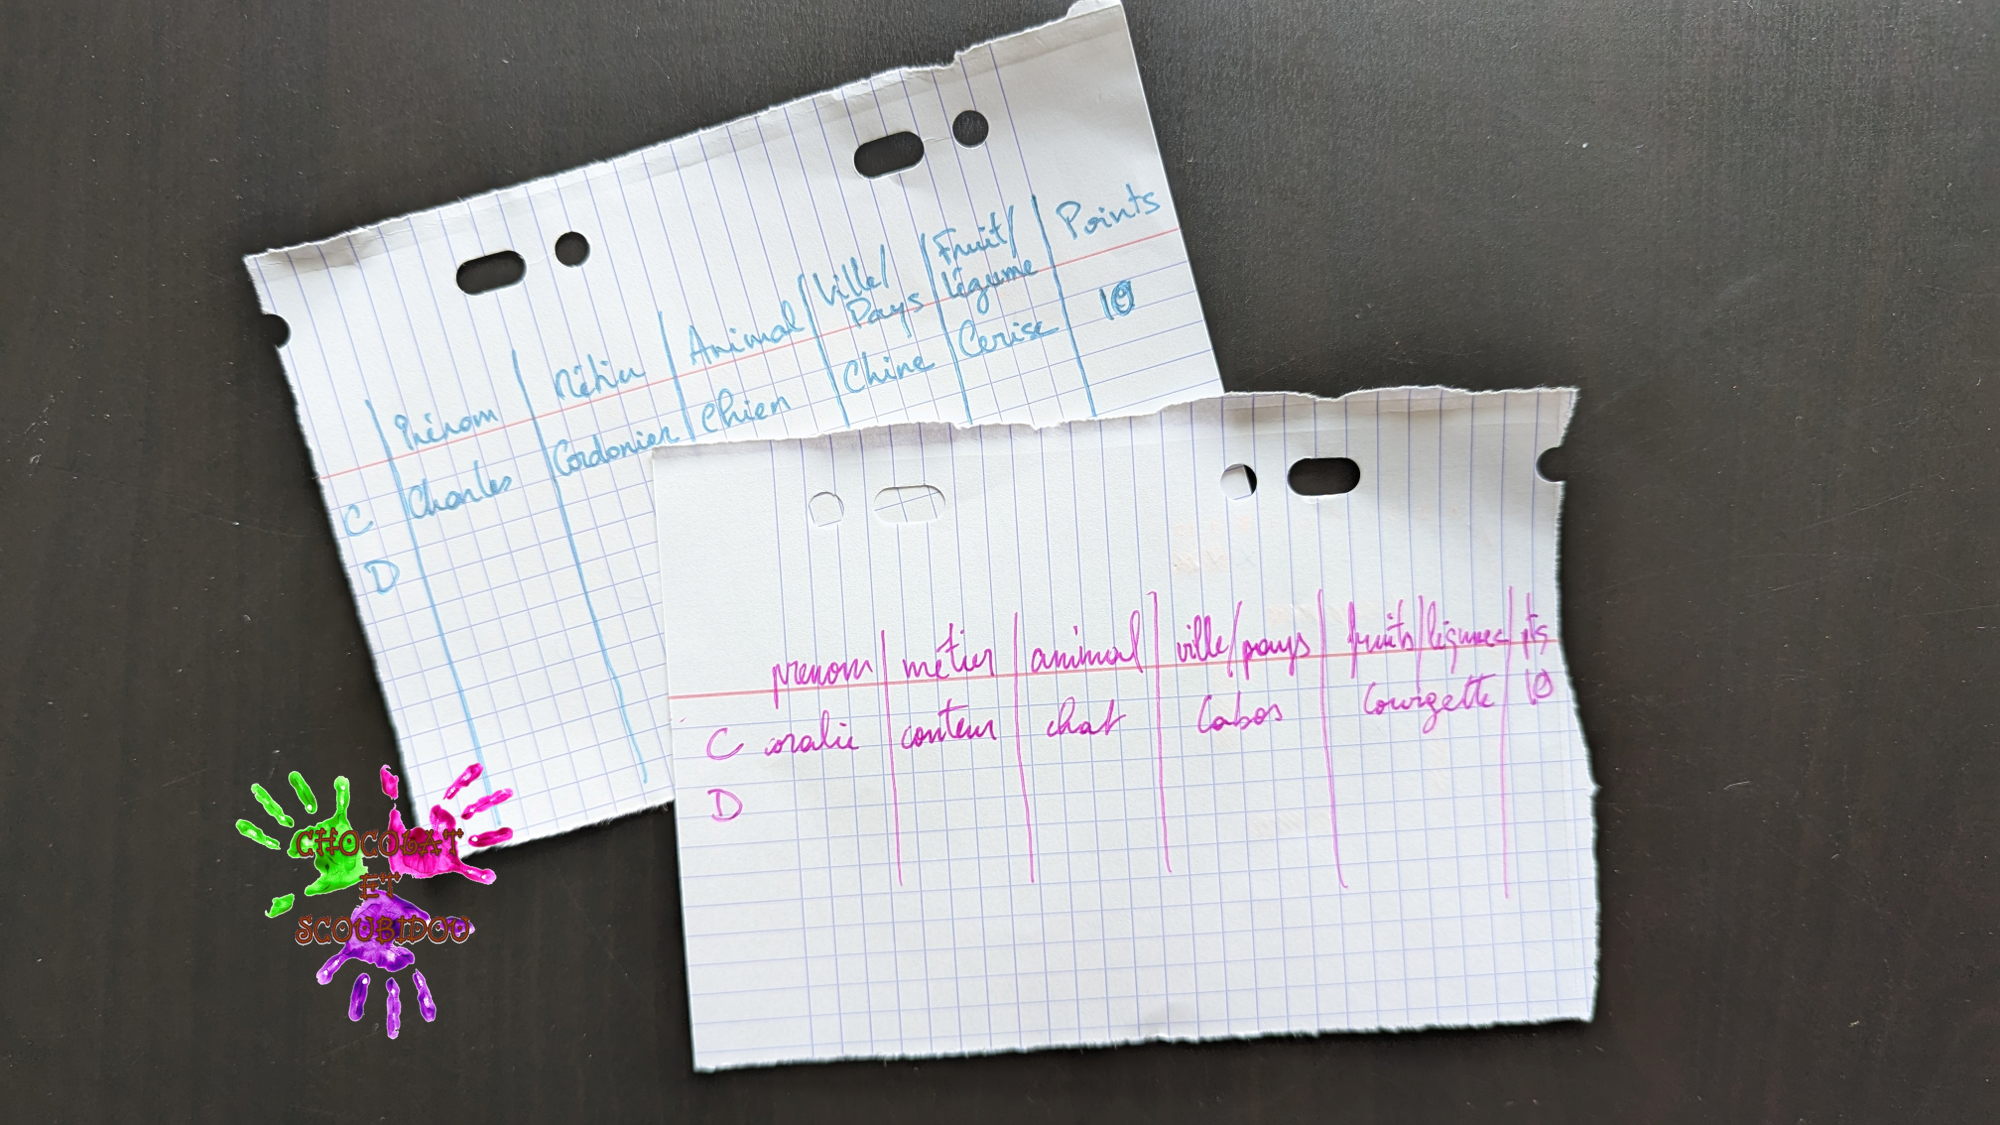 Prénom Métier Animal Ville/ Pays Fruit/ légume Points
C Charles Cordonier Chien Chine Cerise 10
D
prenom métier animal ville/pays fruits/légumes pts
C coralie conteur chat Cabos Courgette 10
D
CHOCOLAT
ET
SCOUBIDOU